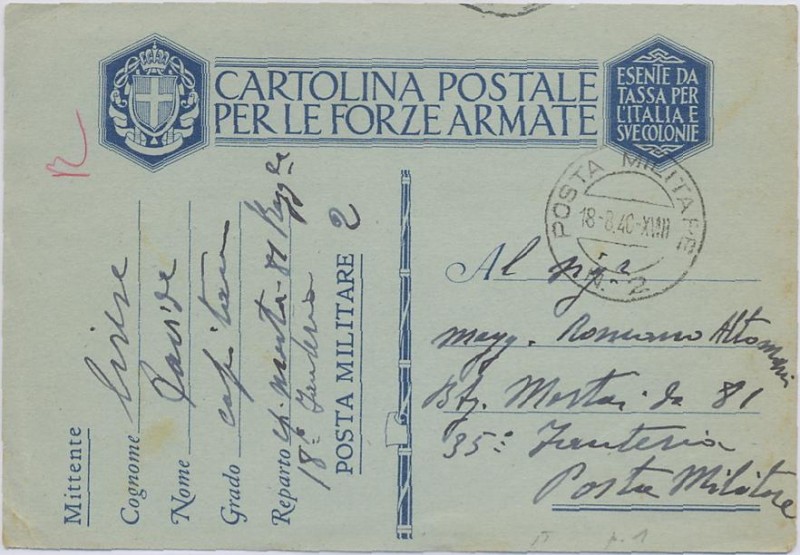 CARTOLINA POSTALE
PER LE FORZE ARMATE
ESENTE DA
TASSA PER
L'ITALIA E
SVE COLONIE
POSTA MILITARE
18-8.40-XVIII
N. 2
Mittente
Cognome
Nome Davide
Grado capitano
Reparto cp. mortai 81
18° Fanteria
POSTA MILITARE 2
Al
magg. Romano Altomari
Btg. Mortai da 81
35° Fanteria
Posta Militare
p. 1